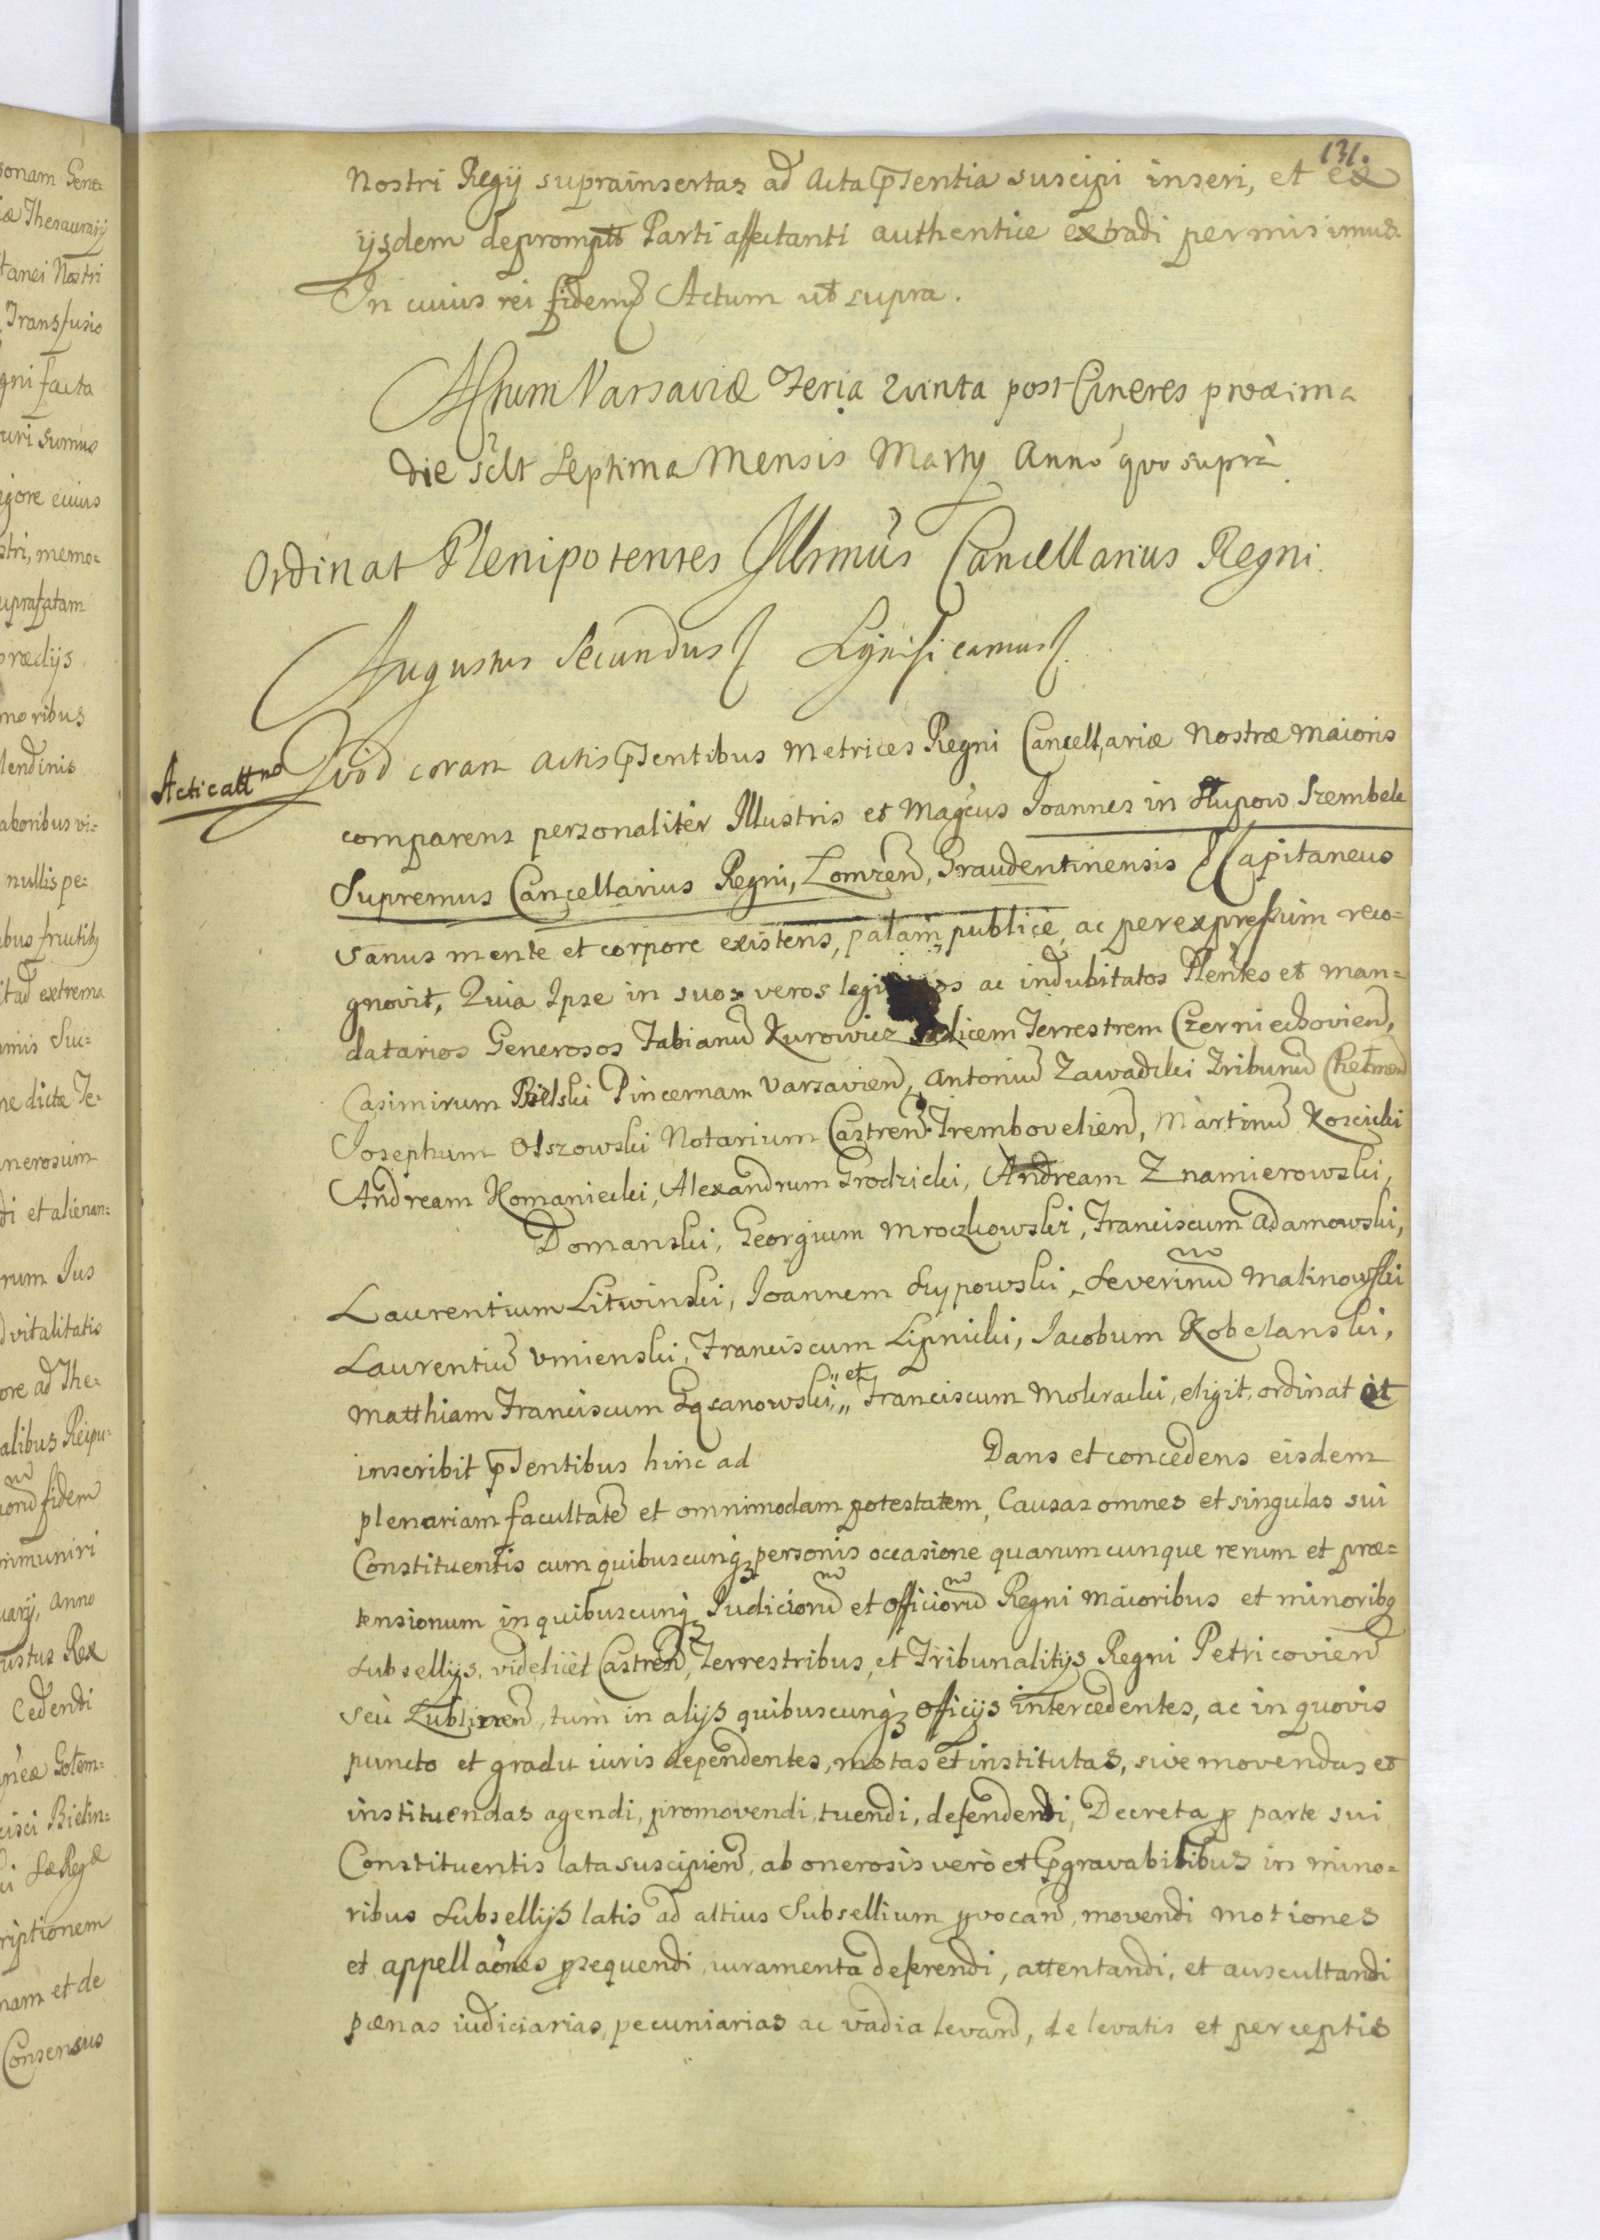 131.
Nostri Regij suprainsertas ad Acta pntia suscipi inseri, et ex
ijsdem deprompt Parti affectanti authentice extradi permisimus
In cuius rei fidem Actum ut supra.
Actum Varsaviæ Feria Quinta post Cineres proxima
die sclt Septima Mensis Martij Anno quo supra
Ordinat Plenipotentes Jllrmus Cancellarius Regni.
Augustus Secundus Significamus
Acticatt no
Quod coram Actis pntibus Metrices Regni Cancellariæ Nostræ Maioris
comparens personaliter Illustris et Magcus Joannes in Słupow Szembek
Supremus Cancellarius Regni, Lomzen, Graudentinensis Capitaneus
sanus mente et corpore existens, palam publice, ac per expressum reco=
gnovit, Quia Ipse in suos veros ac indubitatos Plentes et man=
datarios Generosos Fabianu Kurowicz Terrestrem Czerniechovien,
Casimirum Bielski Pincernam Varsavien, Antoniu Zawadzki Tribunu Chełmen
Josephum Olszowski Notarium Castren Trembovelien, Martinu Koscicki
Andream Homanicki, Alexandrum Grodzicki, Andream Znamierowski,
Domanski, Georgium Mroczkowski, Franciscum Adamowski,
Laurentium Litwinski, Joannem Sypowski, Severinu Malinowski
Laurentiu Umienski, Franciscum Lipnicki, Jacobum Kobelanski,
Matthiam Franciscum et Franciscum Mokracki, eligit, ordinat et
inscribit pntibus hinc ad Dans et concedens eisdem
plenariam facultate et omnimodam potestatem, Causas omnes et singulas sui
Constituentis cum quibuscunq personis occasione quarumcunque rerum et præ=
tensionum in quibuscunq Judicioru et officioru Regni Maioribus et minoribq
Subsellijs, videlicet Castren, Terrestribus, et Tribunalitijs Regni Petricovien
seu Lublinen, tum in alijs quibuscunq Officijs intercedentes, ac in quovis
puncto et gradu iuris dependentes, motas et institutas, sive movendas et
instituendas agendi, promovendi, tuendi, defendendi, Decreta p parte sui
Constituentis lata suscipien, ab onerosis vero et pgravabilibus in mino=
ribus Subsellijs latis ad altius Subsellium pvocan, movendi motiones
et appellaones psequendi, iuramenta deferendi, attentandi, et auscultandi
pænas iudiciarias, pecuniarias ac vadia levan, de levatis et perceptis